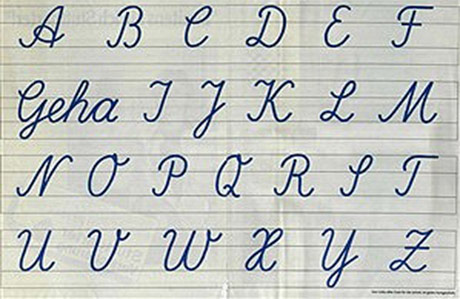 A B C D E F
Geha I J K L M
N O P Q R S T
U V W X Y Z